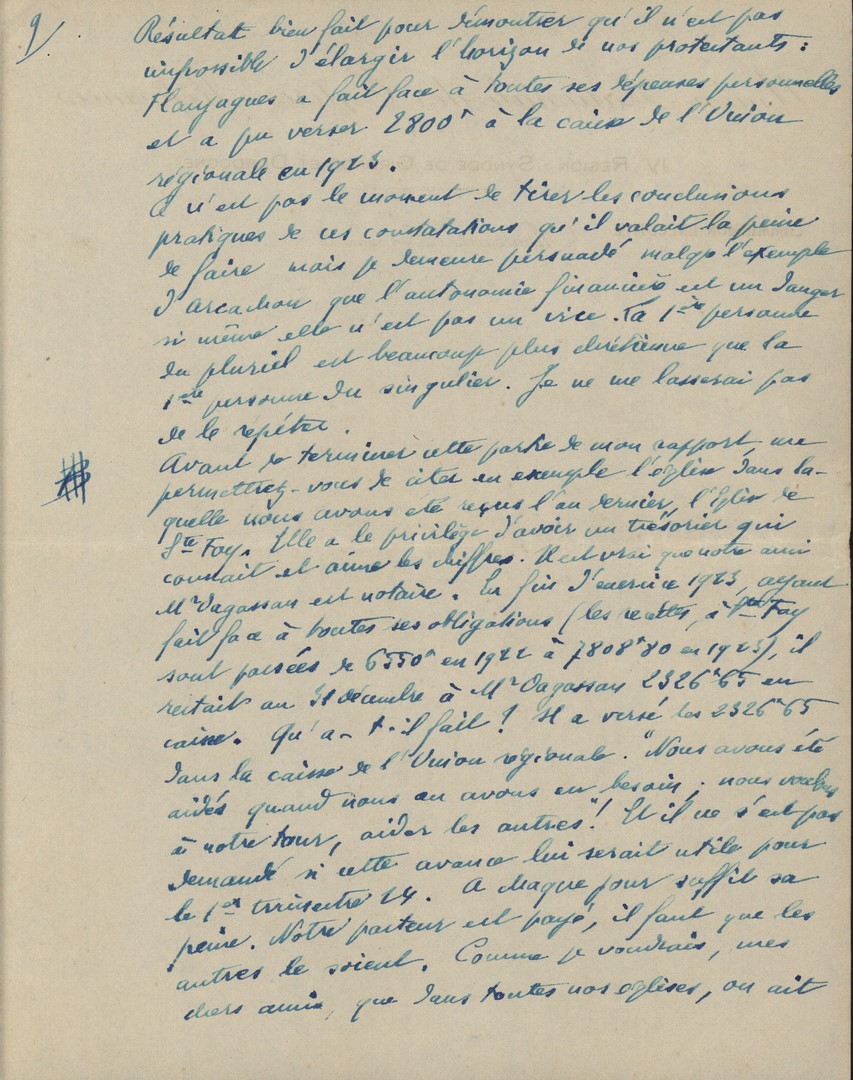 9/
Résultat bien fait pour démontrer qu'il n'est pas
impossible d'élargir l'horizon de nos protestants :
Flaujagues a fait face à toutes ses dépenses personnelles
et a pu verser 2800 f à la caisse de l'Union
régionale en 1923.
Ce n'est pas le moment de tirer les conclusions
pratiques de ces constatations qu'il valait la peine
de faire mais je demeure persuadé malgré l'exemple
d'Arcachon que l'autonomie financière est un danger
si même elle n'est pas un vice. La 1ère personne
du pluriel est beaucoup plus chrétienne que la
1ère personne du singulier. Je ne me lasserai pas
de le répéter.
Avant de terminer cette partie de mon rapport me
permettrez-vous de citer en exemple l'église dans la-
quelle nous avons été reçus l'an dernier, l'Eglise de
Ste Foy. Elle a le privilège d'avoir un trésorier qui
connait et aime les chiffres. Il est vrai que notre ami
Mr Vagassan est notaire. En fin d'exercice 1923, ayant
fait face à toutes ses obligations (les recettes, à Ste Foy
sont passées de 6550 f en 1922 à 7808 f 80 en 1923), il
restait au 31 décembre à Mr Vagassan 2326 f 65 en
caisse. Qu'a-t-il fait ? Il a versé les 2326 f 65
dans la caisse de l'Union régionale. "Nous avons été
aidés quand nous en avons eu besoin ; nous voulons
à notre tour, aider les autres" ! Et il ne s'est pas
demandé si cette avance lui serait utile pour
le 1er trimestre 24. A chaque jour suffit sa
peine. Notre pasteur est payé, il faut que les
autres le soient. Comme je voudrais, mes
chers amis, que dans toutes nos églises, on ait